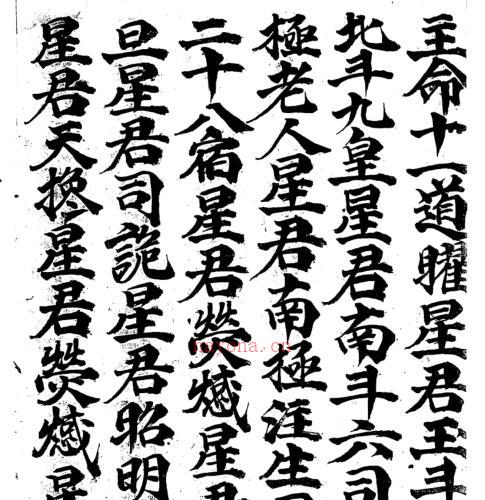 主命十一道曜星君王斗
北斗九皇星君南斗六司
極老人星君南極注生
二十八宿星君熒憾星君
旦星君司詭星君昭明
星君天換星君熒憾星
nayona.cn